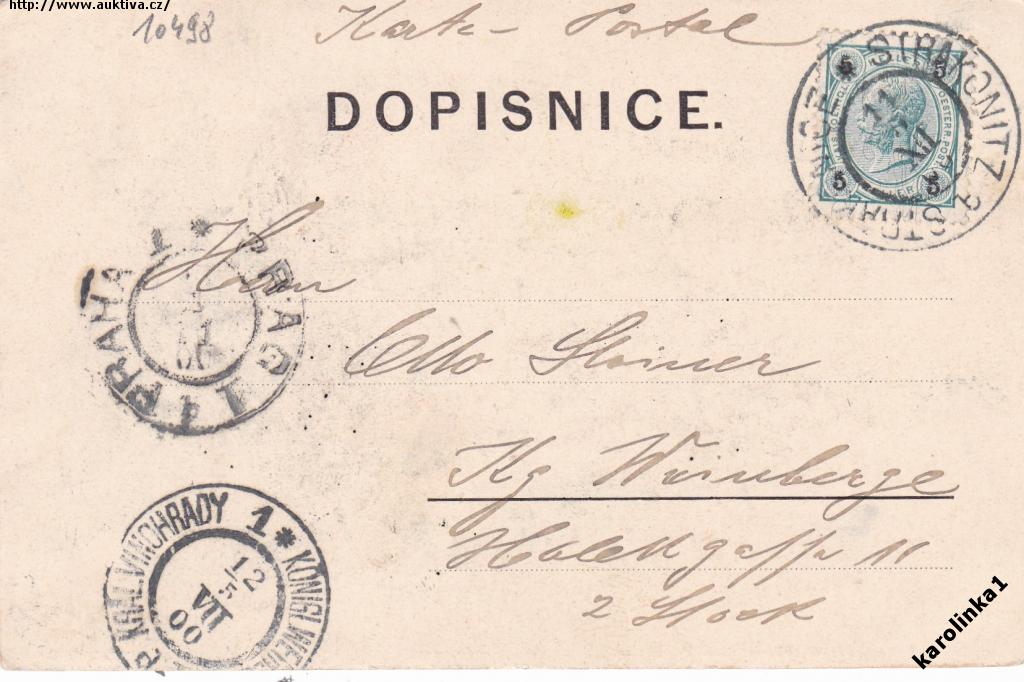 http://www.auktiva.cz/
10498
Karte-Postal
DOPISNICE.
5 5
5 5
STRAKONITZ
11
VII
Herrn
PRAG 1
PRAHA 1
00
Otto Steiner
Kg Weinberge
11
2 Stock
KRÁL. VINOHRADY 1 * KÖNIGL. WEINB
12
5
VII
00
karolinka1